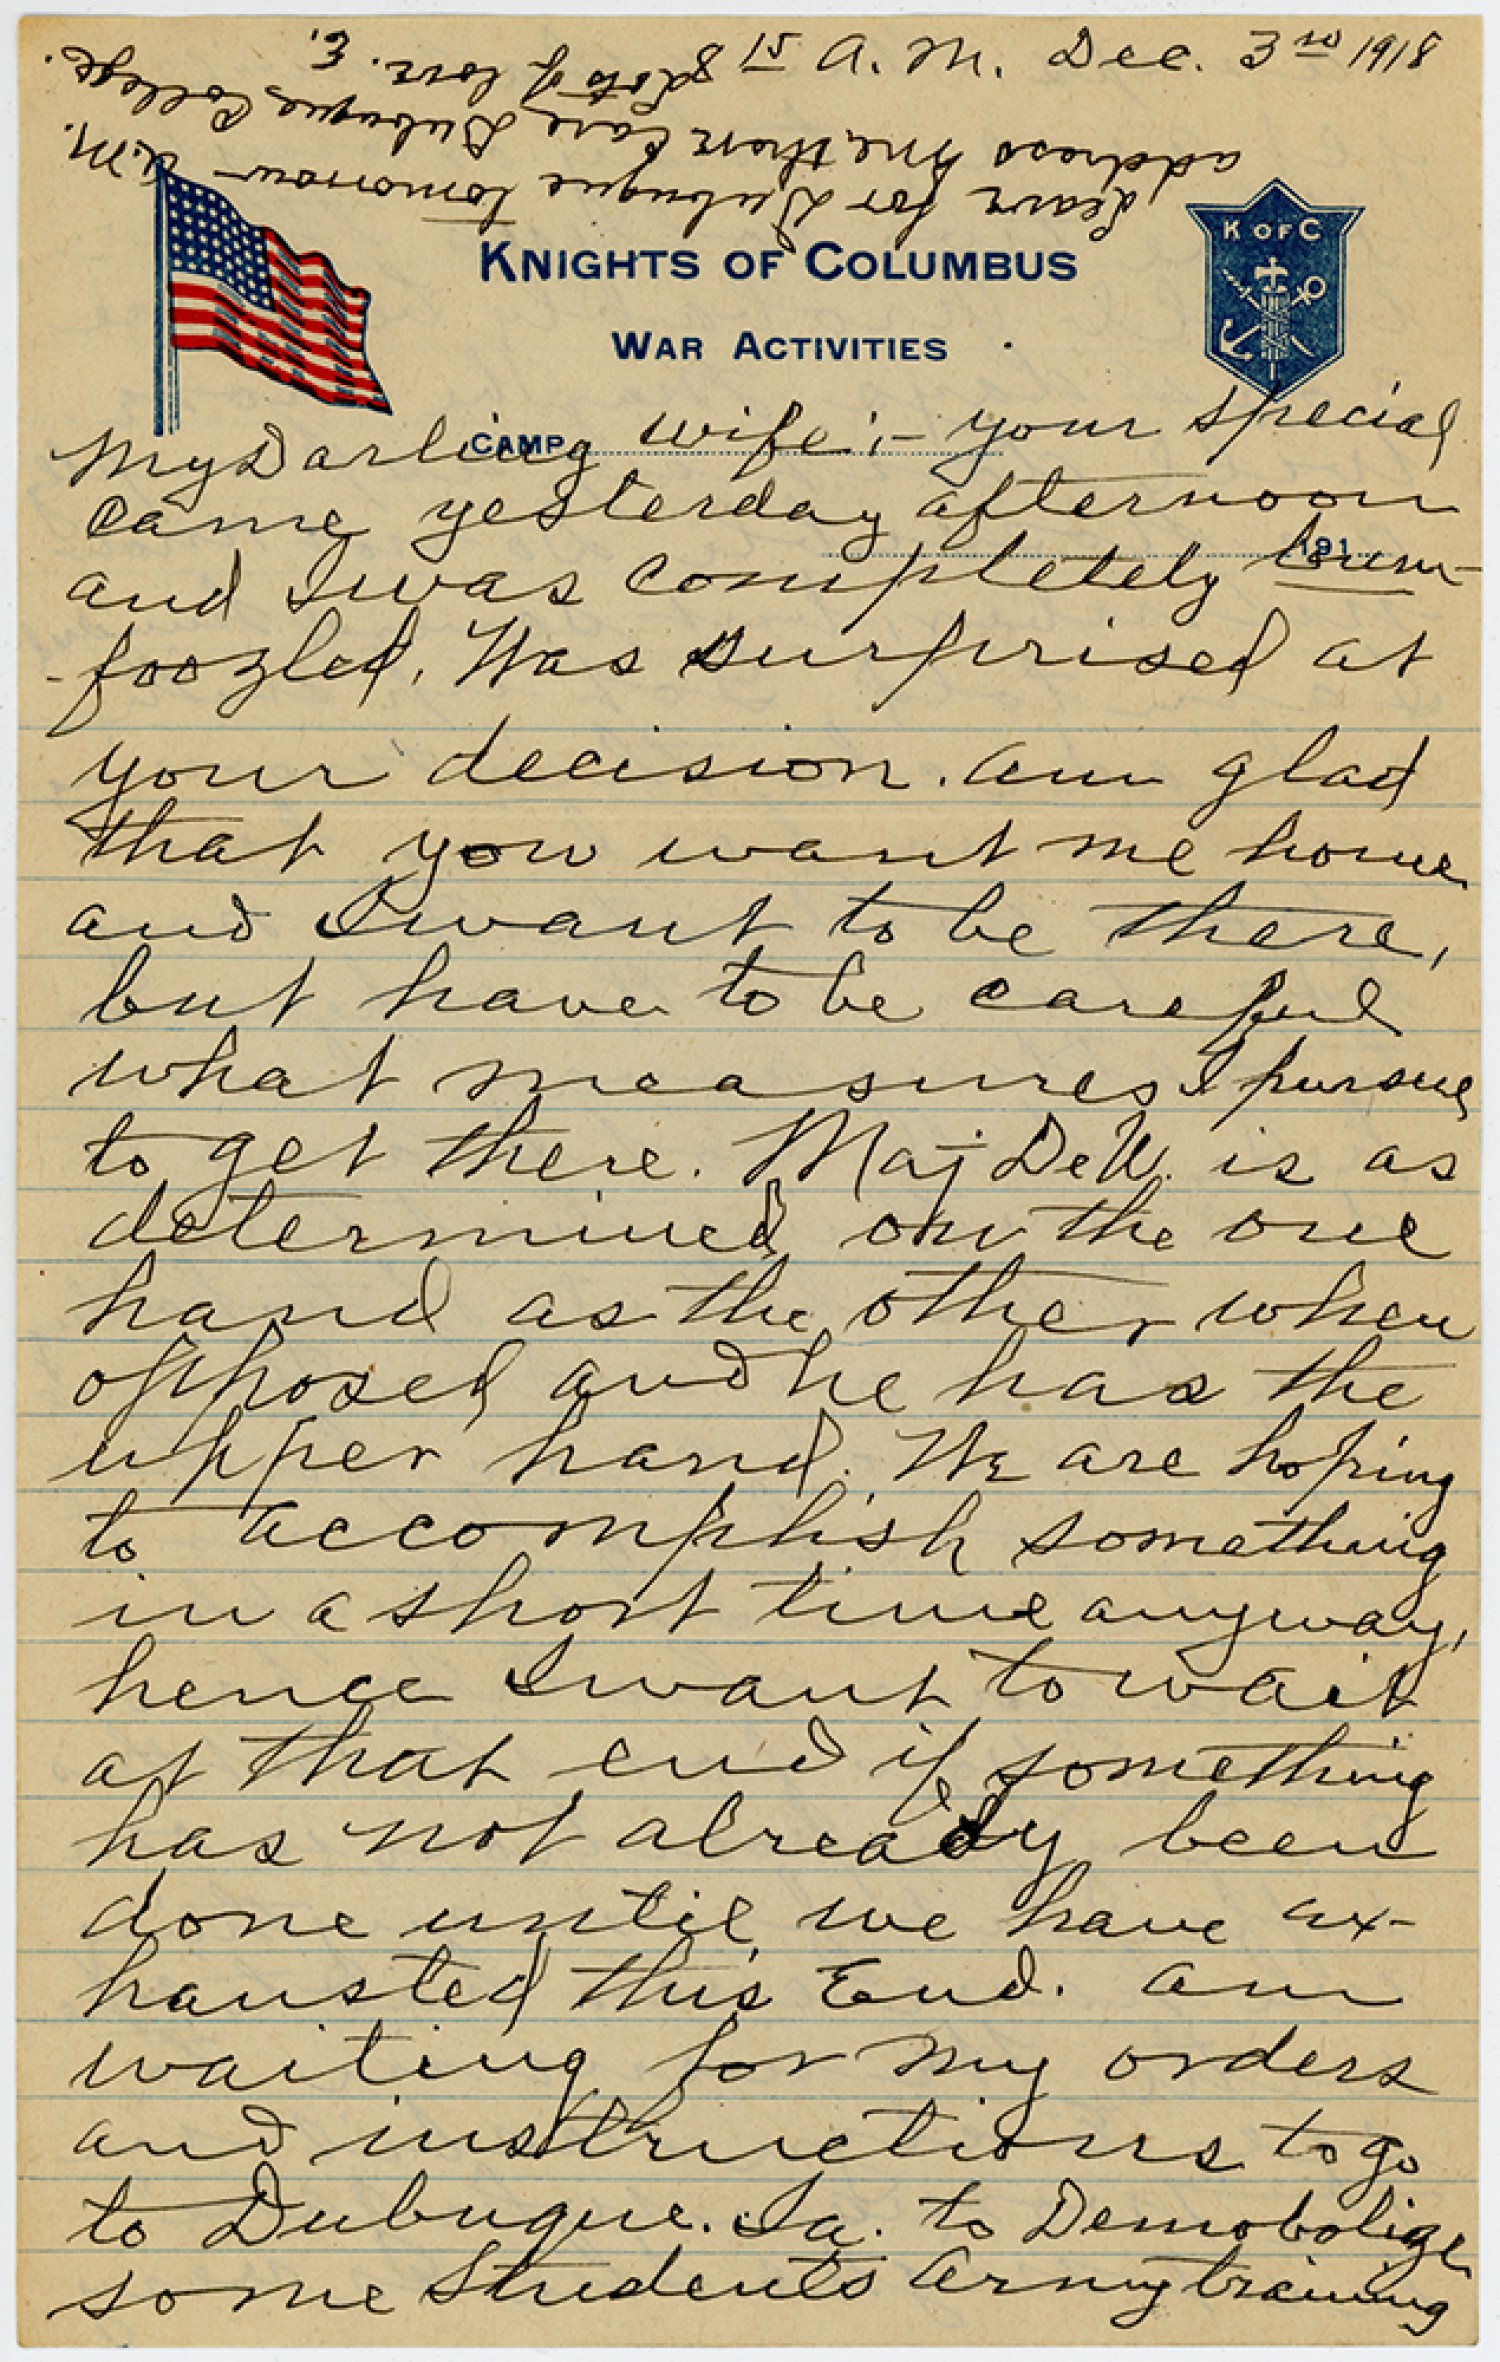 8 15 A. M. Dec. 3rd 1918
Leave for Dubuque tomorrow - A.M.
address me then care Dubuque College.
Lots of love. E.
KNIGHTS OF COLUMBUS
WAR ACTIVITIES
K OF C
CAMP
191
My Darling wife:- your special
came yesterday afternoon
and I was completely bum-
foozled. Was surprised at
your decision. am glad
that you want me home
and I want to be there,
but have to be careful
what measures I pursue
to get there. Maj DeW. is as
determined on the one
hand as the other when
opposed and he has the
upper hand. We are hoping
to accomplish something
in a short time anyway,
hence I want to wait
at that end if something
has not already been
done until we have ex-
hausted this End. am
waiting for my orders
and instructions to go
to Dubuque. Ia. to Demobolize
some Students army training